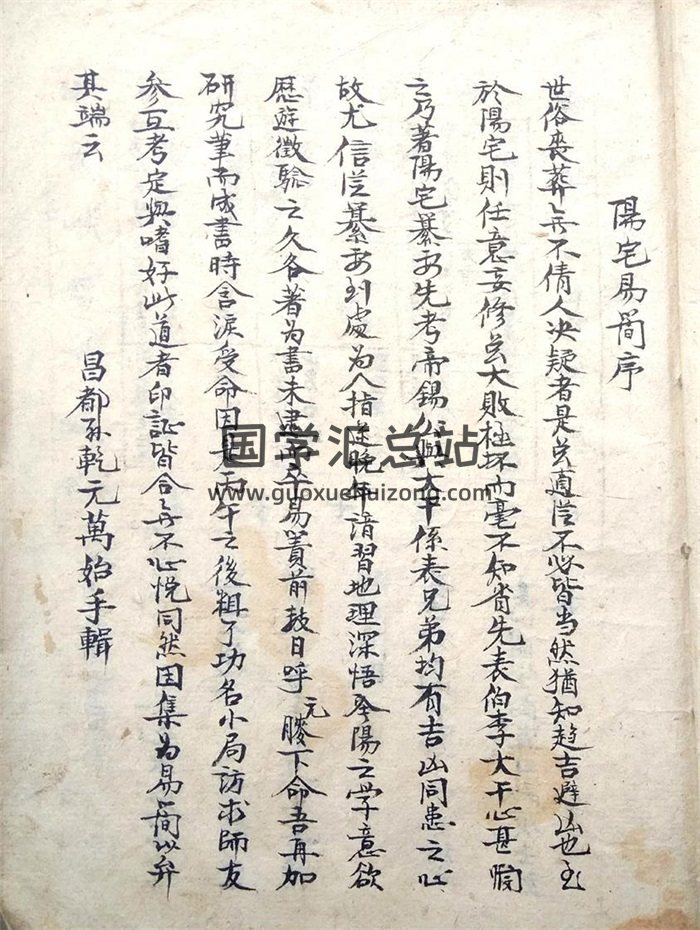 陽宅易简序
世俗丧葬無不倩人决疑者是以適從不必皆当然猶知趋吉避凶也至
於陽宅則任意妄修以大敗極坏而毫不知省先表伯李大干心甚悯
之乃著陽宅纂要先考帝錫公與大干係表兄弟均有吉凶同患之心
故尤信從纂要到處为人指迷晚年清習地理深悟陰陽之學意欲
歷遊徵驗之久各著为書未逮而卒易簀前数日呼元膝下命吾再加
研究筆而成書時含淚受命因是丙午之後粗了功名小局訪求師友
参互考定與嗜好此道者印証皆合無不心悦同然因集为易简以弁
其端云
昌都孫乾元萬始手輯
国学汇总站
www.guoxuehuizong.com